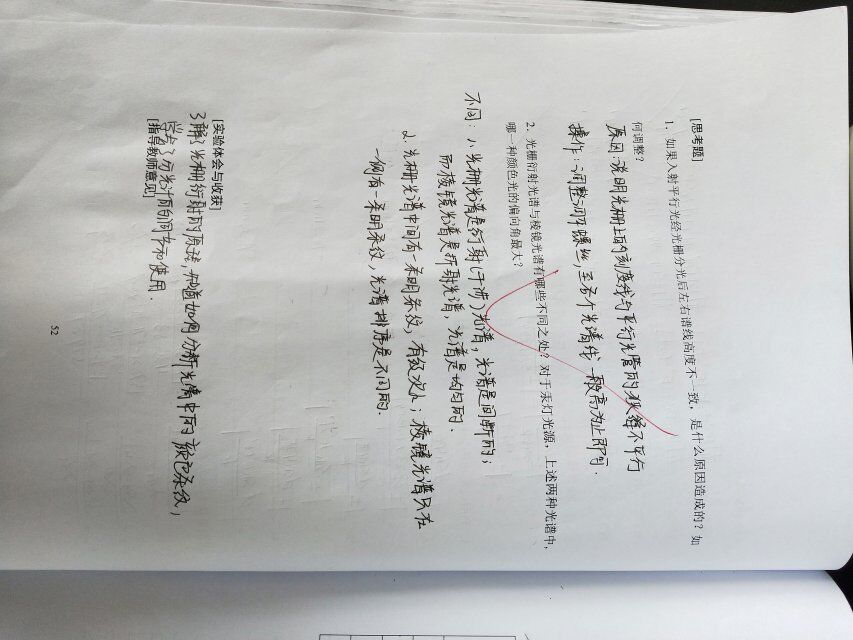 [思考题]
1、如果入射平行光经光栅分光后左右谱线高度不一致，是什么原因造成的？如
何调整？
原因：说明光栅上的刻度线与平行光管的狭缝不平行
操作：调整调平螺丝，至各个光谱线一般高为止即可.
2、光栅衍射光谱与棱镜光谱有哪些不同之处？对于汞灯光源，上述两种光谱中，
哪一种颜色光的偏向角最大？
不同：1.光栅光谱是衍射(干涉)光谱，光谱是间断的；
而棱镜光谱是折射光谱，光谱是均匀的.
2.光栅光谱中间有一条明条纹，有级次；棱镜光谱只在
一侧有一条明条纹，光谱排序是不同的.
[实验体会与收获]
了解了光栅衍射的原理，知道如何分析光谱中的颜色条纹，
学会了分光计的调节和使用.
[指导教师意见]
52